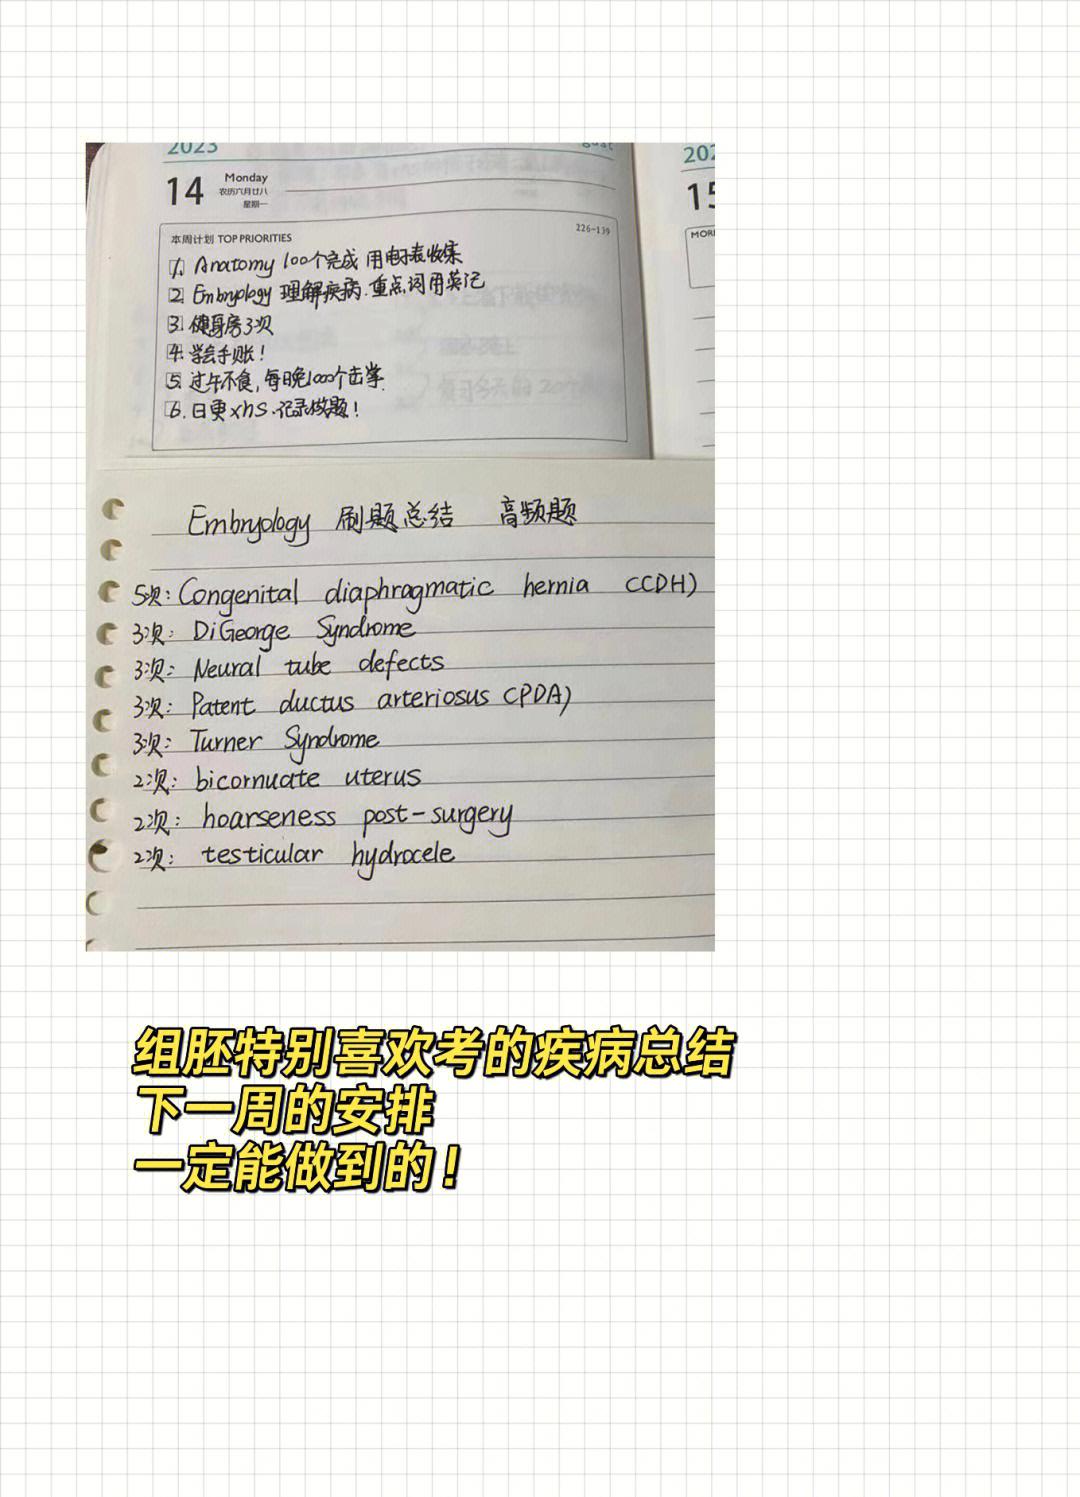 2023
14 Monday
农历六月廿八
星期一
226-139
本周计划 TOP PRIORITIES
1. Anatomy 100个完成 用电子表收集
2. Embryology 理解疾病.重点词用英记
3. 健身房3次
4. 学会手账!
5. 过午不食,每晚1000个击掌.
6. 日更xhs.记录做题!
202
15
MORE
Embryology 刷题总结 高频题
5次: Congenital diaphragmatic hernia (CDH)
3次: DiGeorge Syndrome
3次: Neural tube defects
3次: Patent ductus arteriosus (PDA)
3次: Turner Syndrome
2次: bicornuate uterus
2次: hoarseness post-surgery
2次: testicular hydrocele
组胚特别喜欢考的疾病总结
下一周的安排
一定能做到的!